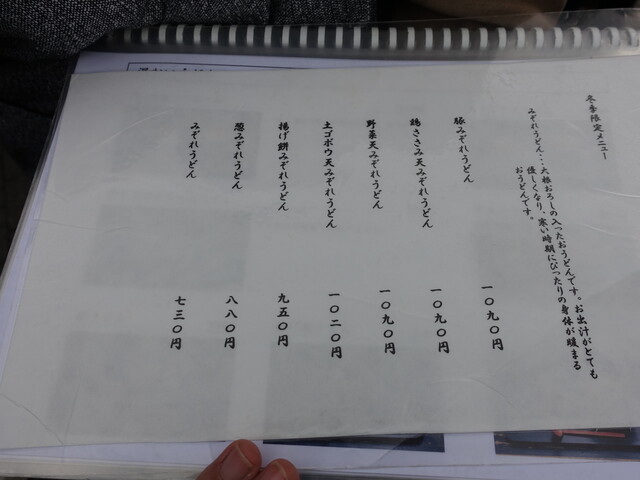 冬季限定メニュー
みぞれうどん・・・大根おろしの入ったおうどんです。お出汁がとても
優しくなり、寒い時期にぴったりの身体が暖まる
おうどんです。
豚みぞれうどん 一〇九〇円
鶏ささみ天みぞれうどん 一〇九〇円
野菜天みぞれうどん 一〇九〇円
土ゴボウ天みぞれうどん 一〇二〇円
揚げ餅みぞれうどん 九五〇円
葱みぞれうどん 八八〇円
みぞれうどん 七三〇円